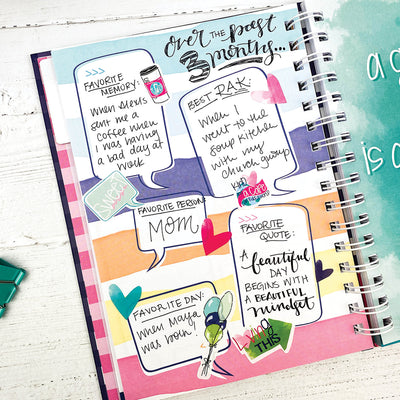 over THE past
3 months...
FAVORITE
MEMORY:
When Alexis
sent me a
coffee when
I was having
a bad day at
work
BEST RAK:
When I
went to the
soup kitchen
with my
church group
SWEET
FAVORITE PERSON:
MOM
FAVORITE
QUOTE:
A
beautiful
DAY
BEGINS WITH
A BEAUTIFUL
mindset
FAVORITE DAY:
When Maya
was born!
Living
THIS
a g
is a